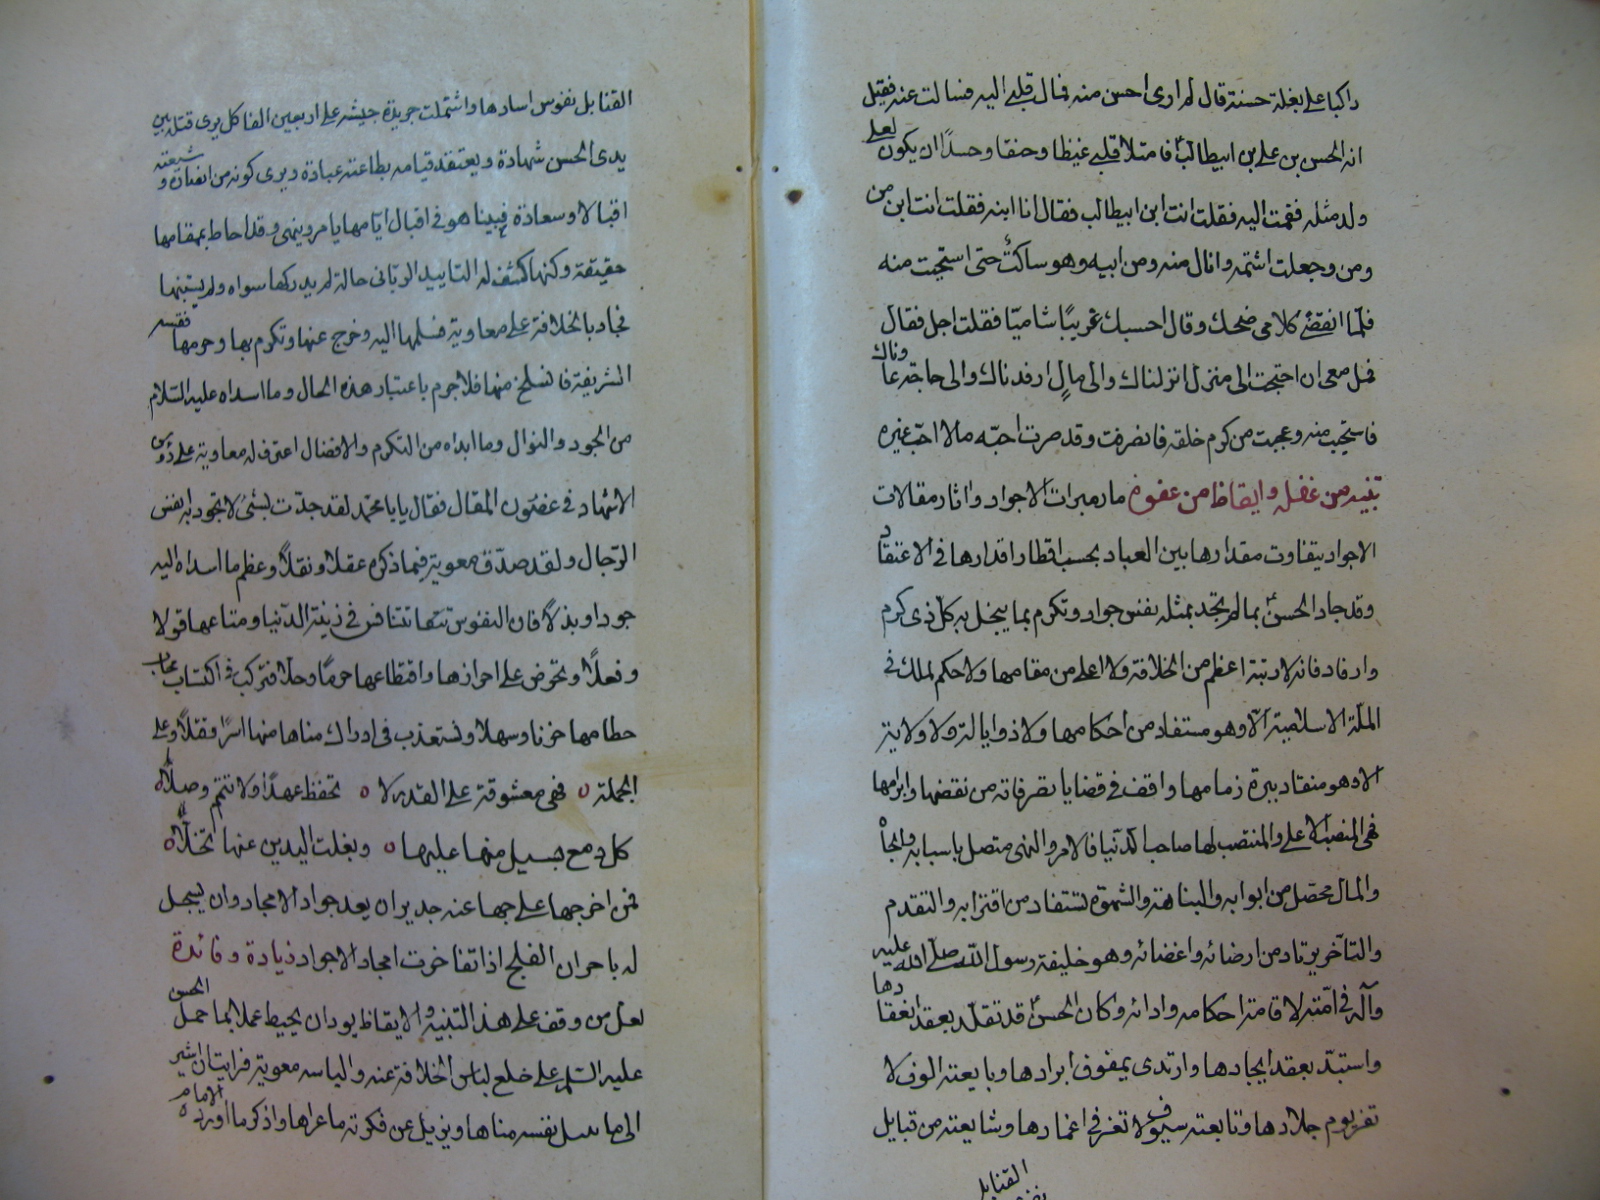 راكبا على بغلة حسنة قال لم ار احسن منه فمال قلبى اليه فسالت عنه فقيل
انه الحسن بن على بن ابيطالب فامتلا قلبى غيظا وحنقا وحسدًا ان يكون لعلى
ولد مثله فقمت اليه فقلت انت ابن ابيطالب فقال انا ابنه فقلت انت ابن من
ومن وجعلت اشتمه وانال منه ومن ابيه وهو ساكتٌ حتى استحيت منه
فلمّا انقضى كلامى ضحك وقال احسبك غريبًا شاميّا فقلت اجل فقال
فمل معى ان احتجت الى منزل انزلناك والى مالٍ ارفدناك والى حاجة عاوناك
فاستحييت منه وعجبت من كرم خلقه فانصرفت وقد صرت احبّه مالا احبّ غيره
تنبيه من غفلة وايقاظ من غفوة مار مبرات الاجواد واثار مقالات
الاجواد يتفاوت مقدارها بين العباد بحسب اقطار اقدارها فى الاعتقاد
وقد جاد الحسن بما لم تجد بمثله نفس جواد وتكرم بما يبخل به كل ذى كرم
وارفاد فانه لا رتبة اعظم من الخلافة ولا اعلى من مقامها ولا حكم لملك فى
الملّة الاسلامية الّا وهو مستفاد من احكامها ولا ذو ايالة ولا ولاية
الا وهو منقاد ببرة زمامها واقف فى قضايا تصرفاته من نقضها وابرامها
فهى المنصب الاعلى والمنتصب لها صاحب الدّنيا فالامر والنهى متصل باسبابه والجاه
والمال محصل من ابوابه والنباهة والشهرة تستفاد من اقترابه والتقدم
والتأخر يرتاد من ارضائه واغضائه وهو خليفة رسول اللّه صلّى اللّه عليه
وآله فى امّته لاقامة احكامه وادائه وكان الحسن قد تقلّد بعقد انعقادها
واستبدّ بعقد ايجادها وارتدى بمفوف ابرادها وبايعته الوف لا
تفر يوم جلادها وتابعته سيوف لا تغر فى اغمادها وشايعته من قبايل
القبايل نفوس اسادها واشتملت جريدة جيشه على اربعين الفا كل يرى قتله بين
يدى الحسن شهادة ويعتقد قيامه بطاعته عبادة ويرى كونه من انصاره وشيعته
اقبالا وسعادة فبينا هو فى اقبال ايامها يامر وينهى وقد احاط بمقامها
حقيقة وكنها كشف له التاييد الربّانى حالة لم يدركها سواه ولم يستبنها
فجاد بالخلافة على معاوية فسلمها اليه وخرج عنها وتكرم بها وحرمها نفسه
الشريفة فانسلخ منها فلا جرم باعتبار هذه الحال وما اسداه عليه السّلام
من الجود والنوال وما ابداه من التكرم والافضال اعترف له معاوية على رؤس
الاشهاد فى غضون المقال فقال يابا محمد لقد جدّت بشئ لا تجود به انفس
الرّجال ولقد صدّق معوية فيما ذكره عقلا ونقلًا وعظم ما اسداه اليه
جودا وبذلًا فان النفوس تتنافس فى زينة الدّنيا ومتاعها قولا
وفعلًا وتحرص على احرازها واقتطاعها حرمًا وحلا فتركب فى اكتساب
حطامها حزنا وسهلا وتستعذب فى ادراك مناها منها اسرًا وقتلًا وعلى
الجملة فهى معشوقة على الغدر لا تحفظ عهدًا ولا تتم وصلًا
كل دمع يسيل منها عليها وبفلت اليدين عنها تخلّا
فمن اخرجها على حبها عنه جدير ان يعد جواد الامجاد وان يسجل
له باحراز الفلج اذا تفاخرت امجاد الاجواد زيادة وفائدة
لعل من وقف على هذا التنبيه والايقاظ يود ان يحيط علما بما حمل الحسن
عليه السّلم على خلع لباس الخلافة عنه والباسه معوية فرايت ان اشير
الى ما ينيل نفسه مناها ويزيل عن فكرته ما عراها واذكر ما اورده الامام